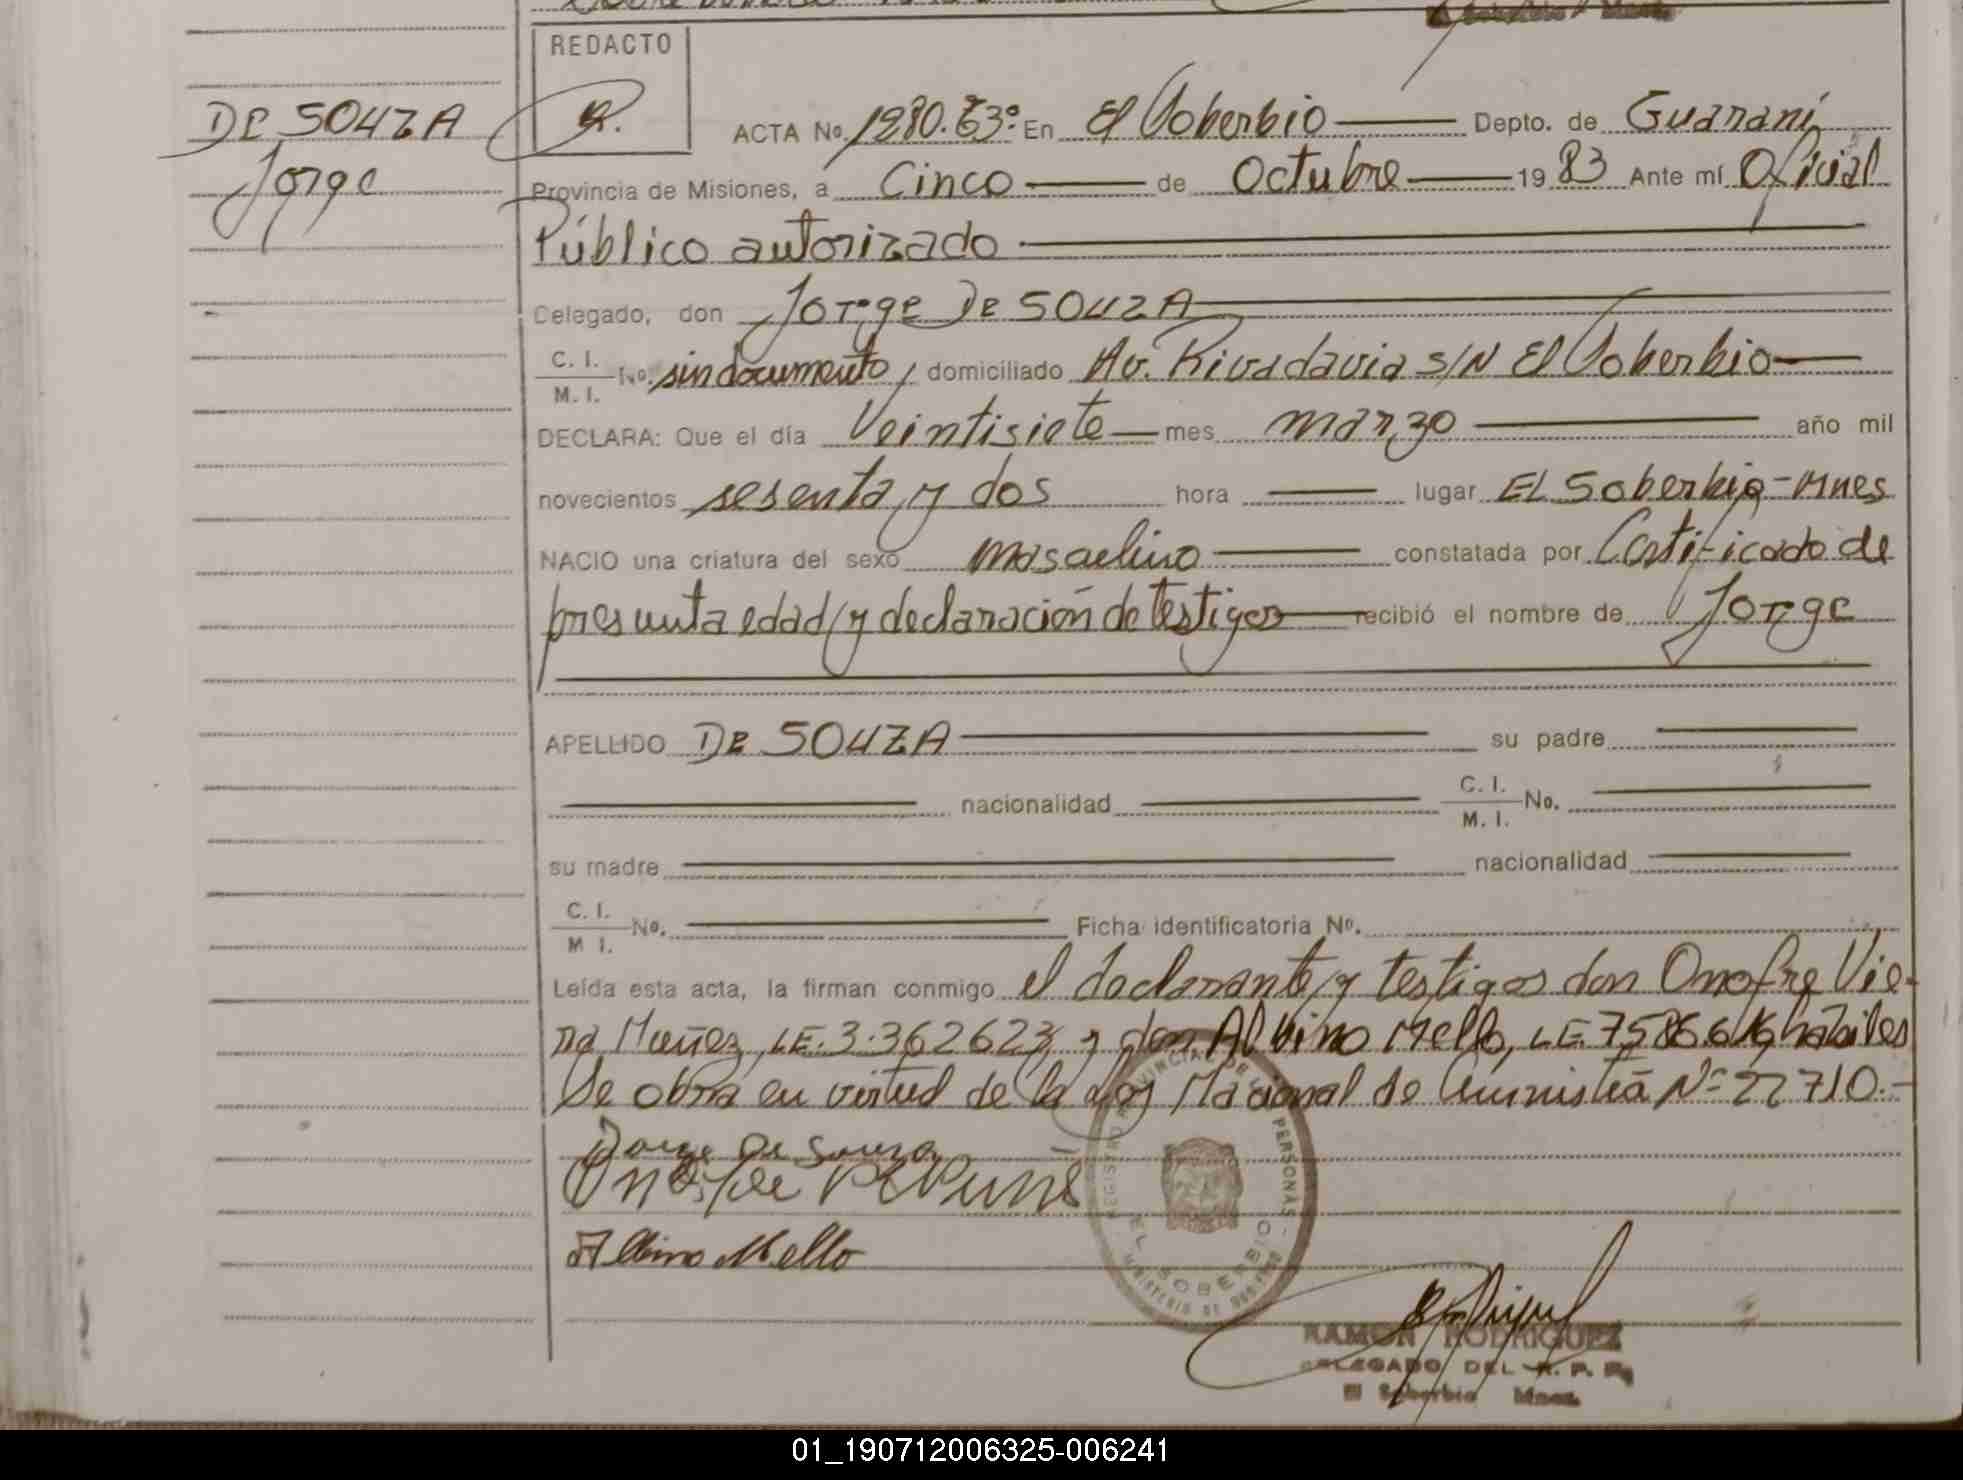 REDACTO
DE SOUZA
Jorge
ACTA No. 1280. 63º. En El Soberbio Depto. de Guaraní
Provincia de Misiones, a Cinco de Octubre 19 83 Ante mí Oficial
Público autorizado
Delegado, don Jorge De SOUZA
C. I.
M. I.
No. sin documento, domiciliado Av. Rivadavia S/N El Soberbio
DECLARA: Que el día Veintisiete mes marzo año mil
novecientos sesenta y dos hora lugar EL Soberbio-Mnes
NACIO una criatura del sexo masculino constatada por Certificado de
presunta edad y declaración de testigos recibió el nombre de Jorge
APELLIDO De SOUZA su padre
nacionalidad C. I.
M. I.
No.
su madre nacionalidad
C. I.
M I.
No. Ficha identificatoria No.
Leída esta acta, la firman conmigo el declarante y testigos don Onofre Vie-
ra Muñoz, LE. 3.362623, y don Albino Mello, L.E. 7586.616 hábiles
Se obra en virtud de la Ley Nacional de Amnistía Nº 22710.-
Jorge De Souza
Albino Mello
REGISTRO PROVINCIAL DE PERSONAS
EL SOBERBIO
MINISTERIO DE GOBIERNO
RAMON RODRIGUEZ
DELEGADO DEL R. P. P.
El Soberbio Mnes.
01_190712006325-006241